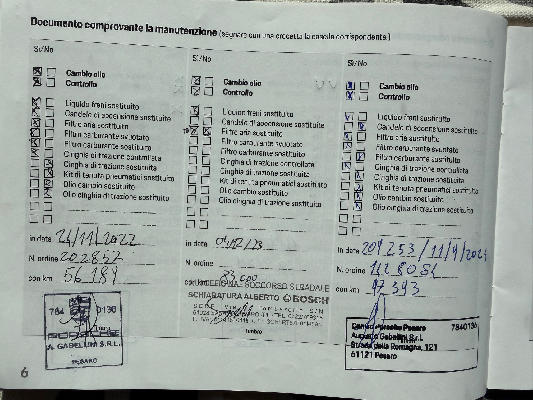 Documento comprovante la manutenzione (segnare con una crocetta la casella corrispondente)
Si/No
Cambio olio
Controllo
Liquido freni sostituito
Candele di accensione sostituite
Filtro aria sostituito
Filtro carburante svuotato
Filtro carburante sostituito
Cinghia di trazione controllata
Cinghia di trazione sostituita
Kit di tenuta pneumatici sostituito
Olio cambio sostituito
Olio cinghia di trazione sostituito
in data 24/11/2022
N. ordine 202852
con km 56 189
784 0130
GABELLINI S.R.L.
PESARO
Si/No
Cambio olio
Controllo
Liquido freni sostituito
Candele di accensione sostituite
Filtro aria sostituito
Filtro carburante svuotato
Filtro carburante sostituito
Cinghia di trazione controllata
Cinghia di trazione sostituita
Kit di tenuta pneumatici sostituito
Olio cambio sostituito
Olio cinghia di trazione sostituito
in data
N. ordine
con km 83 000
SOCCORSO STRADALE
SCHIARATURA ALBERTO BOSCH
timbro
Si/No
Cambio olio
Controllo
Liquido freni sostituito
Candele di accensione sostituite
Filtro aria sostituito
Filtro carburante svuotato
Filtro carburante sostituito
Cinghia di trazione controllata
Cinghia di trazione sostituita
Kit di tenuta pneumatici sostituito
Olio cambio sostituito
Olio cinghia di trazione sostituito
in data
N. ordine
con km 97 393
Centro Porsche Pesaro 7840130
Augusto Gabellini S.r.l.
Strada della Romagna, 121
61121 Pesaro
6